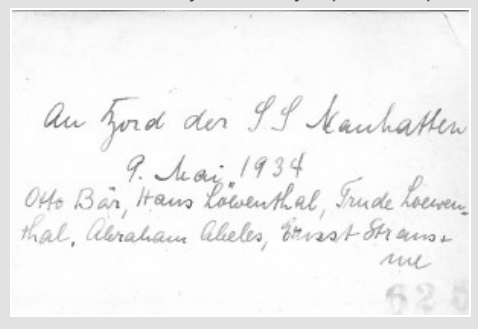 An Bord der SS Manhatten
9. Mai 1934
Otto Bär, Hans Löwenthal, Trude Loewen-
thal, Abraham Abeles, Ernst Straus +
me
625